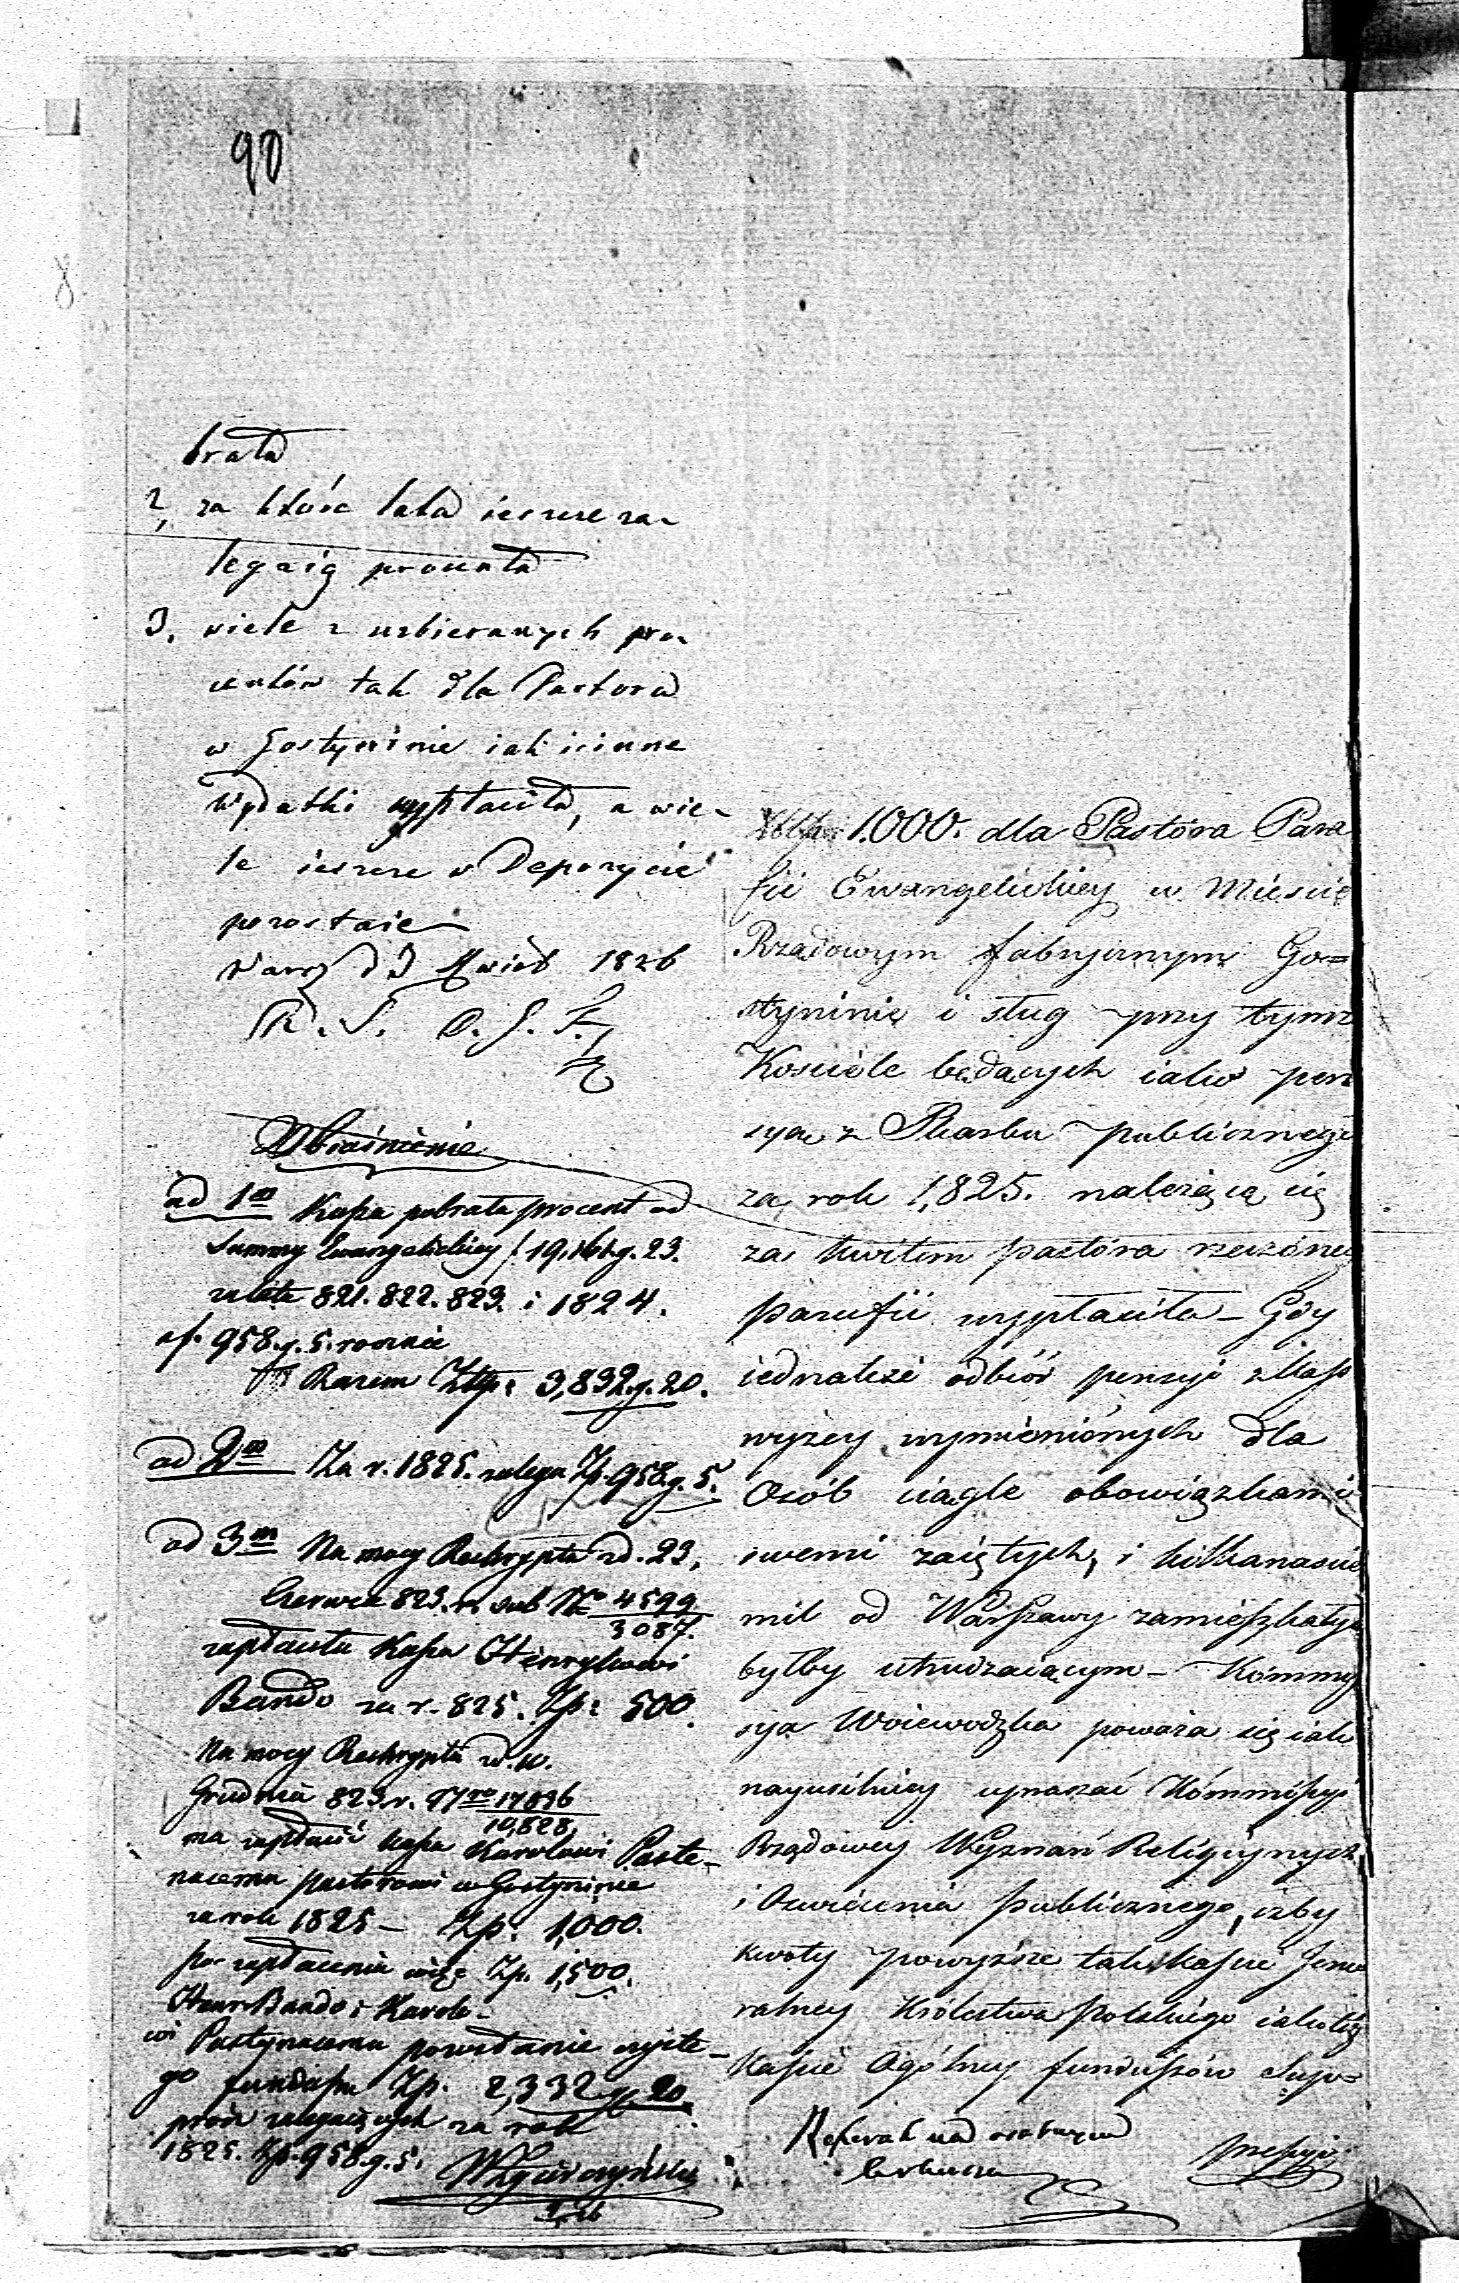 90
brała
2, za które lata ieszcze za-
legaią procenta
3, wiele z uzbieranych pro-
centów tak dla Pastora
w Gostyninie iak i inne
wydatki wypłaciła, a wie-
le ieszcze w Depozycie
pozostaie
Warsz d 3 Kwiet 1826
Obiaśnienie
ad 1m Kassa pobrała procent od
Summy Ewangelickiey f 19,161.g.23.
za lata 821. 822. 823. i 1824.
af. 958.g.5. rocznie
Razem Złtp: 3,832.g.20.
ad 2m Za r. 1825. zalega Zp. 958.g.5.
ad 3m Na mocy Reskryptu z d. 23.
Czerwca 823. r. sub Nro 4599
3087.
zapłaciła Kassa Henrykowi
Bando za r. 825. Zp: 500.
Na mocy Reskryptu z d.
Grudnia 823. r. Nro 17836
10,828.
ma zapłacić Kassa Karolowi Paste-
nacemu pastorowi w Gostyninie
za rok 1825 – Zp: 1,000.
po zapłaceniu więc Zp. 1,500.
Henr. Bando i Karolo-
wi Pastynacemu pozostanie czyste-
go funduszu Zp. 2,332 g. 20.
procz zalegaiących za rok
1825. Zp. 958.g.5.
1.000. dla Pastora Para
fii Ewangelickiey w Mieście
Rządowym fabrycznym Go=
styninie i sług przy tymż
Kościele będących iako pen
sya z Skarbu publicznego
za rok 1,825. należącą się
za kwitem pastora rzeczoney
parafii wypłaciła – Gdy
iednakże odbiór pensyi z Kass
wyżey wymienionych dla
Osób ciągle obowiązkami
swemi zaiętych, i kilkanaście
mil od Warszawy zamieszkałych
byłby utrudzaiącym – Kommis
sya Woiewodzka poważa się iak
nayusilniey upraszać Kommissyi
Rządowey Wyznań Religiynych
i Oświecenia publicznego, iżby
kwoty powyższe tak Kassie Jene
ralney Królestwa Polskiego iakoteż
Kassie Ogólney funduszów Supp-
pressyi